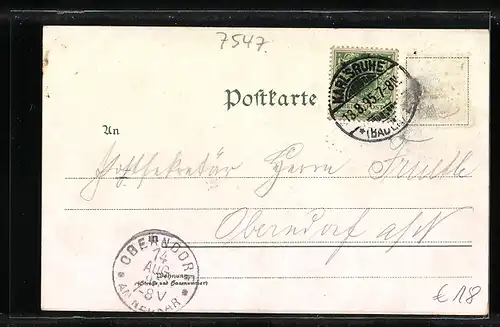 7547.
KARLSRUHE
13.8.95.7-8N
*(BADEN)
Postkarte
An
Postsekretär Herrn
Oberndorf a/N
in
OBERNDORF
14
AUG
7-8V
* AM NECKAR *
Wohnung
(Straße und Hausnummer)
€18